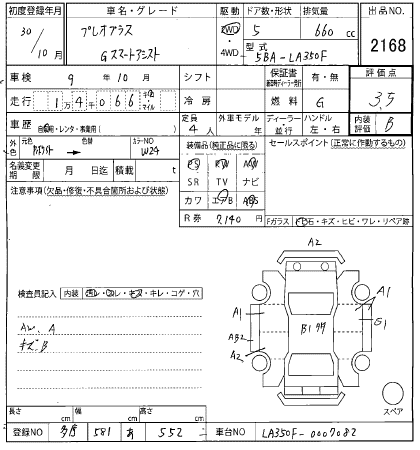 初度登録年月 車名・グレード 駆動 ドア数・形状 排気量 出品NO.
30/10月 プレオプラス 2WD 5 660 cc 2168
Gスマートアシスト 4WD 型式 5BA-LA350F
車検 9年10月 シフト 保証書 有・無 評価点
走行 1万4千066 キロ・マイル 冷房 燃料 G 3.5
車歴 自家用・レンタ・業務用( ) 定員 4人 外車モデル 年 ディーラー 並行 ハンドル 左・右 内装評価 B
外色 元色 色替 カラーNO W24 装備品(純正品に限る) セールスポイント(正常に作動するもの)
PS PW AW
名義変更期限 月 日迄 積載 t SR TV ナビ
注意事項(欠品・修復・不具合箇所および状態) カワ エアB ABS
R券 7140円 Fガラス 石・キズ・ヒビ・ワレ・リペア跡
A2
検査員記入 内装 コレ・キズ・キレ・コゲ・穴
A1 A1
AW.A AB2 B1 G1
キズ.B A2
スペア
長さ cm 幅 cm 高さ cm
登録NO 多摩 581 あ 552 車台NO LA350F-0007082